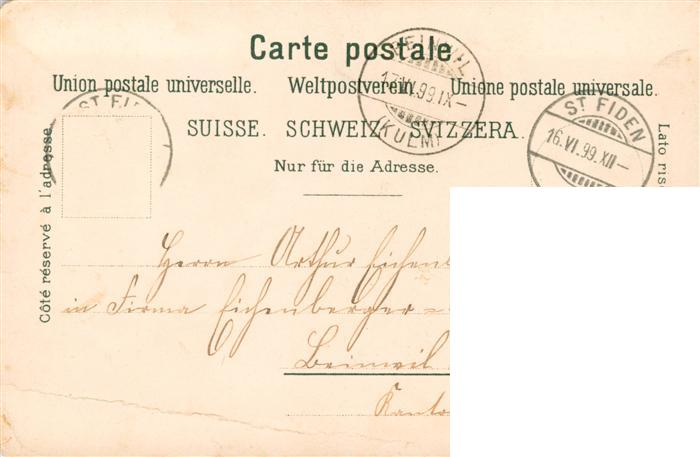 Carte postale.
Union postale universelle. Weltpostverein. Unione postale universale.
SUISSE. SCHWEIZ. SVIZZERA.
Nur für die Adresse.
Côté réservé à l'adresse.
Lato ris
BEINWYL
17.VI.99.IX–
(KULM)
ST. FIDEN
16.VI.99.XII–
ST. FID
Herrn Arthur Eichenb
in Firma Eichenberger-
Beinwil
Kanto